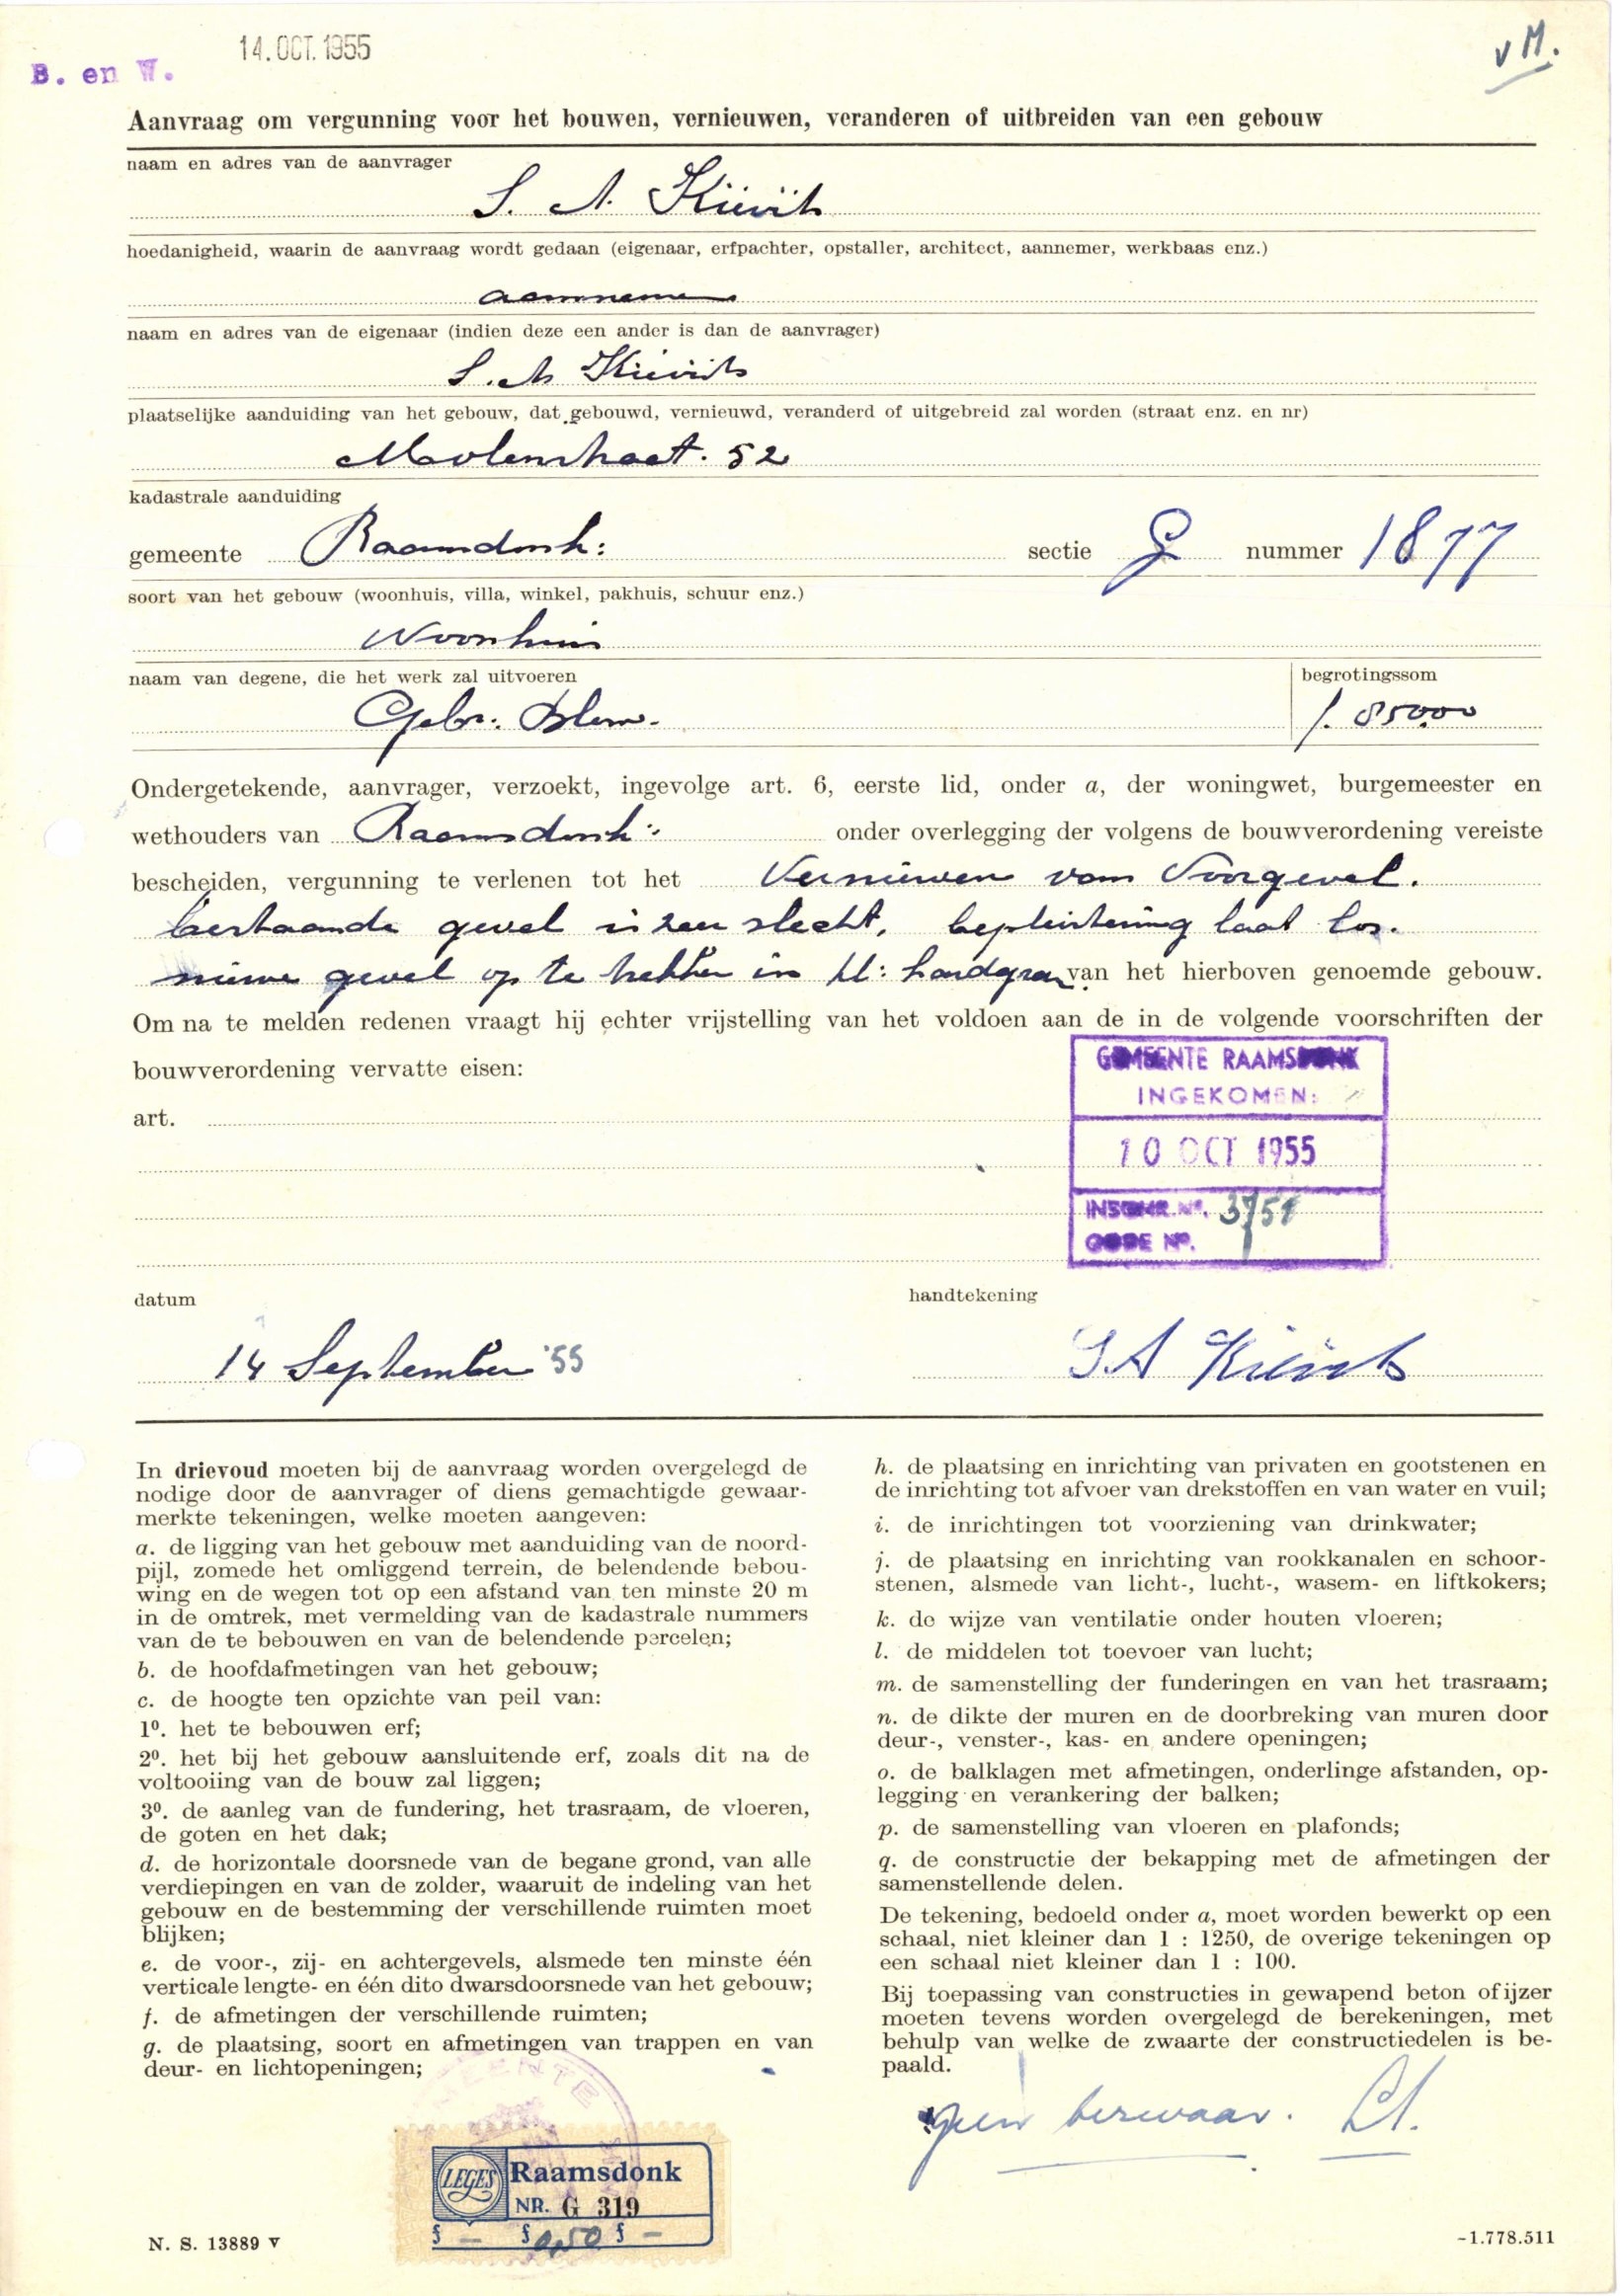 14. OCT. 1955
B. en W.
v M.
Aanvraag om vergunning voor het bouwen, vernieuwen, veranderen of uitbreiden van een gebouw
naam en adres van de aanvrager
S. A. Kievits
hoedanigheid, waarin de aanvraag wordt gedaan (eigenaar, erfpachter, opstaller, architect, aannemer, werkbaas enz.)
aannemer
naam en adres van de eigenaar (indien deze een ander is dan de aanvrager)
S. A. Kievits
plaatselijke aanduiding van het gebouw, dat gebouwd, vernieuwd, veranderd of uitgebreid zal worden (straat enz. en nr)
Molenstraat. 52
kadastrale aanduiding
gemeente Raamsdonk: sectie G nummer 1877
soort van het gebouw (woonhuis, villa, winkel, pakhuis, schuur enz.)
Woonhuis
naam van degene, die het werk zal uitvoeren
begrotingssom
Gebr.
Ondergetekende, aanvrager, verzoekt, ingevolge art. 6, eerste lid, onder a, der woningwet, burgemeester en
wethouders van Raamsdonk: onder overlegging der volgens de bouwverordening vereiste
bescheiden, vergunning te verlenen tot het Vernieuwen van Voorgevel.
bestaande gevel is zeer slecht, bepleistering laat los.
nieuwe gevel op te trekken in kl: handgrau van het hierboven genoemde gebouw.
Om na te melden redenen vraagt hij echter vrijstelling van het voldoen aan de in de volgende voorschriften der
bouwverordening vervatte eisen:
art.
GEMEENTE RAAMSDONK
INGEKOMEN:
10 OCT 1955
INSCHR. Nº. 3751
CODE Nº.
datum
handtekening
14 September '55
S A Kievits
In drievoud moeten bij de aanvraag worden overgelegd de
nodige door de aanvrager of diens gemachtigde gewaar-
merkte tekeningen, welke moeten aangeven:
a. de ligging van het gebouw met aanduiding van de noord-
pijl, zomede het omliggend terrein, de belendende bebou-
wing en de wegen tot op een afstand van ten minste 20 m
in de omtrek, met vermelding van de kadastrale nummers
van de te bebouwen en van de belendende percelen;
b. de hoofdafmetingen van het gebouw;
c. de hoogte ten opzichte van peil van:
1º. het te bebouwen erf;
2º. het bij het gebouw aansluitende erf, zoals dit na de
voltooiing van de bouw zal liggen;
3º. de aanleg van de fundering, het trasraam, de vloeren,
de goten en het dak;
d. de horizontale doorsnede van de begane grond, van alle
verdiepingen en van de zolder, waaruit de indeling van het
gebouw en de bestemming der verschillende ruimten moet
blijken;
e. de voor-, zij- en achtergevels, alsmede ten minste één
verticale lengte- en één dito dwarsdoorsnede van het gebouw;
f. de afmetingen der verschillende ruimten;
g. de plaatsing, soort en afmetingen van trappen en van
deur- en lichtopeningen;
h. de plaatsing en inrichting van privaten en gootstenen en
de inrichting tot afvoer van drekstoffen en van water en vuil;
i. de inrichtingen tot voorziening van drinkwater;
j. de plaatsing en inrichting van rookkanalen en schoor-
stenen, alsmede van licht-, lucht-, wasem- en liftkokers;
k. de wijze van ventilatie onder houten vloeren;
l. de middelen tot toevoer van lucht;
m. de samenstelling der funderingen en van het trasraam;
n. de dikte der muren en de doorbreking van muren door
deur-, venster-, kas- en andere openingen;
o. de balklagen met afmetingen, onderlinge afstanden, op-
legging en verankering der balken;
p. de samenstelling van vloeren en plafonds;
q. de constructie der bekapping met de afmetingen der
samenstellende delen.
De tekening, bedoeld onder a, moet worden bewerkt op een
schaal, niet kleiner dan 1 : 1250, de overige tekeningen op
een schaal niet kleiner dan 1 : 100.
Bij toepassing van constructies in gewapend beton of ijzer
moeten tevens worden overgelegd de berekeningen, met
behulp van welke de zwaarte der constructiedelen is be-
paald.
geen bezwaar.
LEGES Raamsdonk
NR. G 319
§ — § 0,50 § —
N. S. 13889 v
-1.778.511